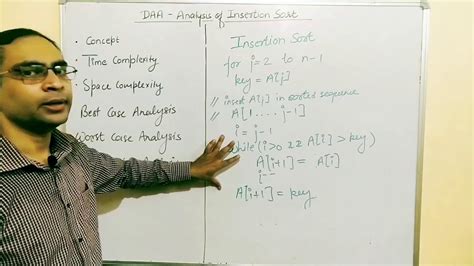 DAA - Analysis of Insertion Sort
• Concept
• Time Complexity
• Space Complexity
Best Case Analysis
Worst Case Analysis
Insertion Sort
for j=2 to n-1
key = A[j]
// insert A[j] in sorted sequence
// A[1....j-1]
i = j-1
while (i>0 && A[i] > key)
A[i+1] = A[i]
i--
A[i+1] = key